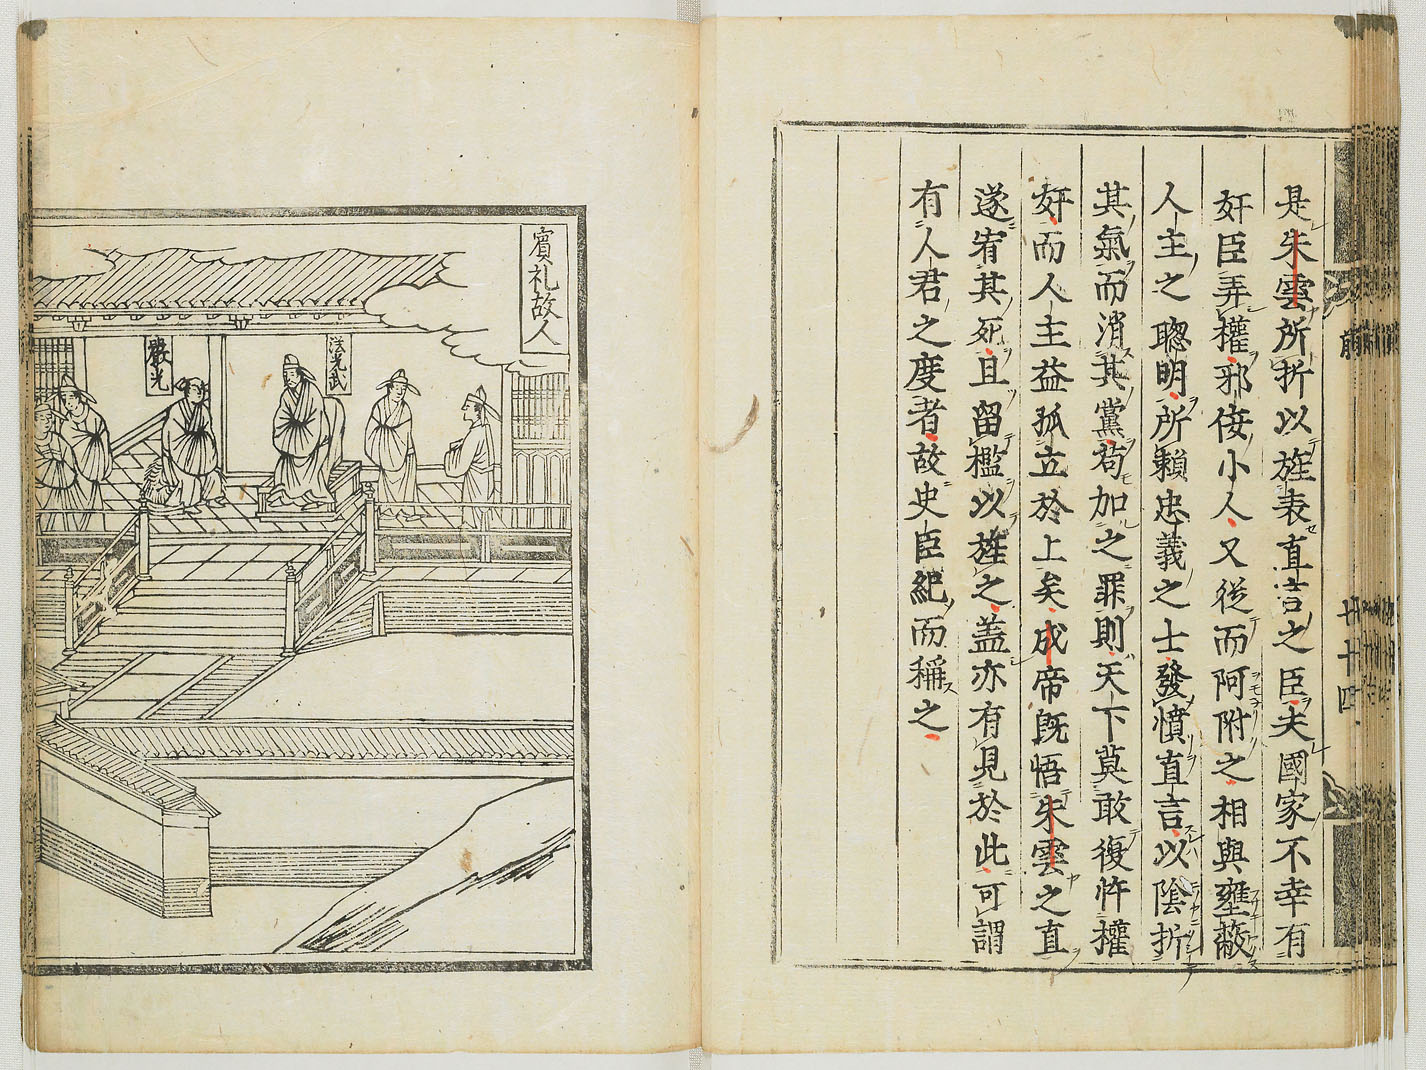 是朱雲所折以旌表直言之臣夫國家不幸有
奸臣弄權邪佞小人又從而阿附之相與壅蔽
人主之聦明所賴忠義之士發憤直言以陰折
其氣而消其黨苟加之罪則天下莫敢復忤權
奸而人主益孤立於上矣成帝既悟朱雲之直
遂宥其死且留檻以旌之盖亦有見於此可謂
有人君之度者故史臣紀而稱之
賓礼故人
漢光武
嚴光